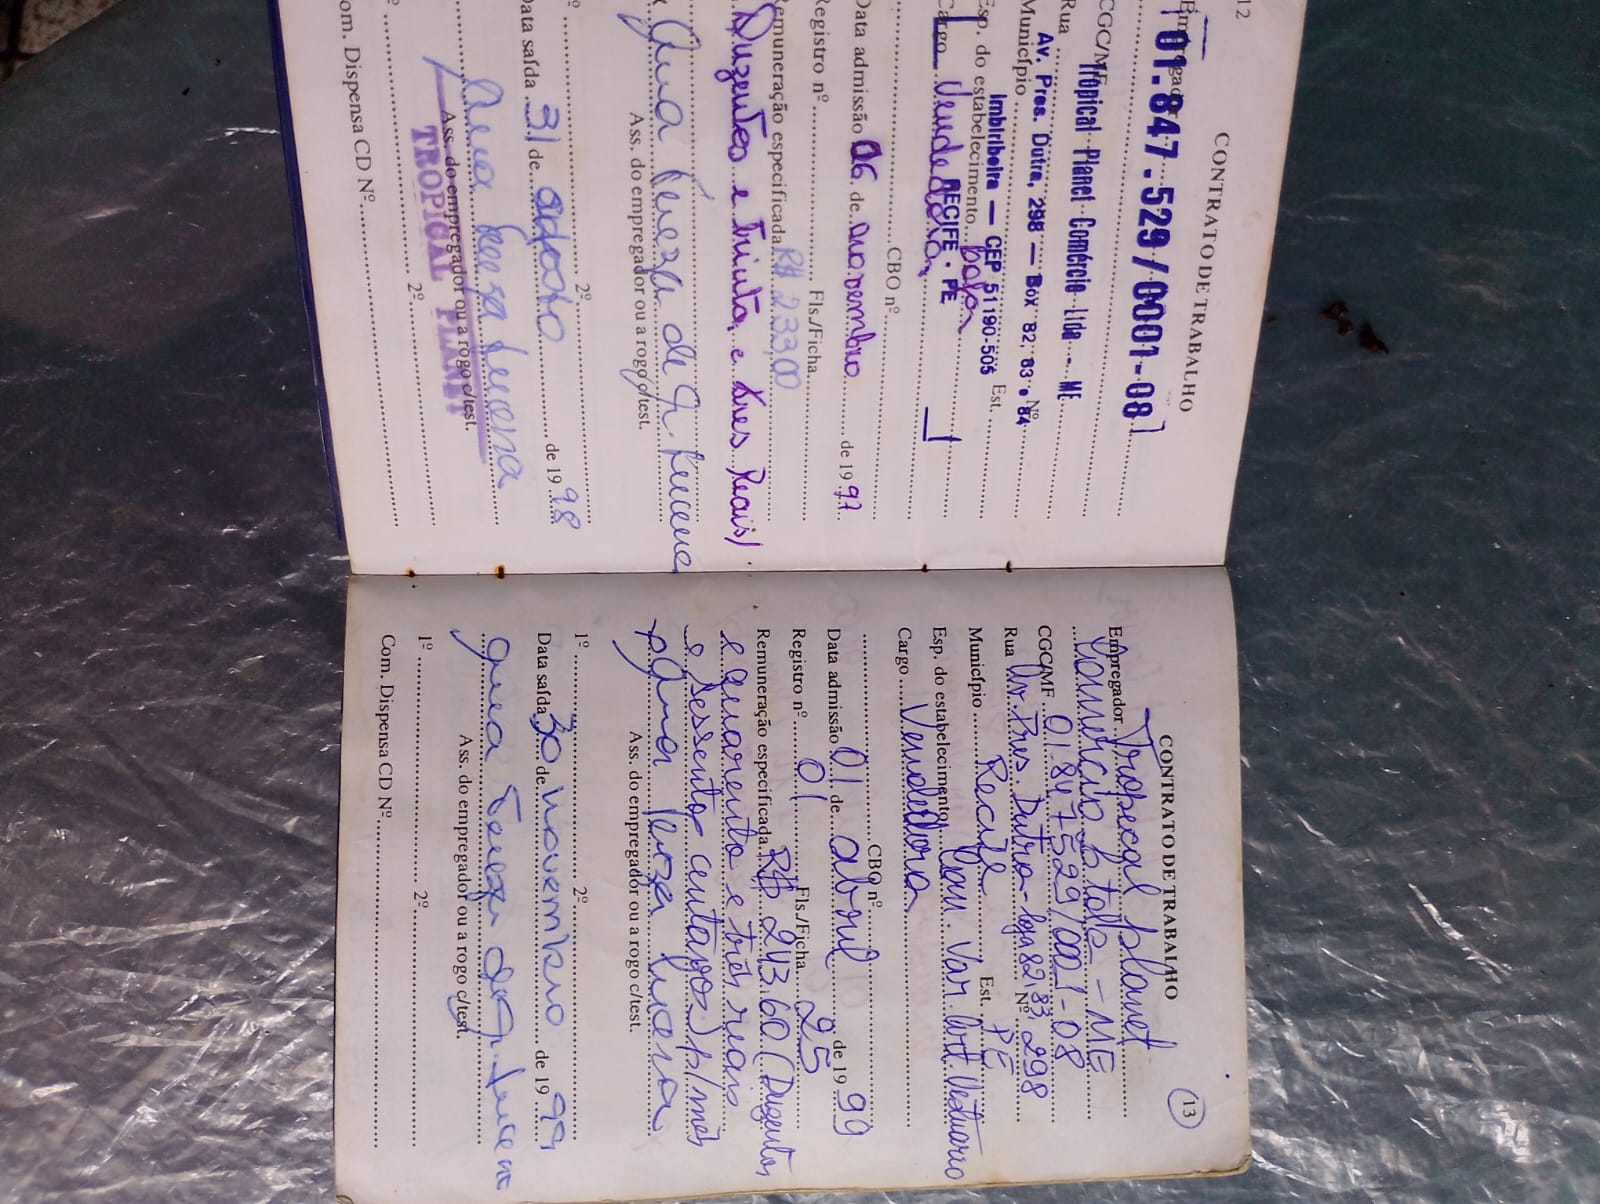 12
CONTRATO DE TRABALHO
Empregador
01.847.529/0001-08
CGC/MF
Tropical Planet Comércio Ltda - ME
Rua Nº
Av. Pres. Dutra, 298 — Box 82, 83 e 84
Município Est.
Imbiribeira — CEP 51190-505
Esp. do estabelecimento loja
RECIFE - PE
Cargo Vendedora
CBO nº
Data admissão 06 de novembro de 1997
Registro nº Fls./Ficha
Remuneração especificada R$ 233,00
Duzentos e trinta e tres Reais)
Ana Tereza de Lucena
Ass. do empregador ou a rogo c/test.
1º 2º
Data saída 31 de agosto de 1998
Ana Tereza Lucena
Ass. do empregador ou a rogo c/test.
TROPICAL PLANET
1º 2º
Com. Dispensa CD Nº
13
CONTRATO DE TRABALHO
Empregador Tropical planet
Comercio Ltda - ME
CGC/MF 01.847529/0001-08
Rua Av. Pres. Dutra - loja 82, 83 Nº 298
Município Recife Est. PE
Esp. do estabelecimento Com. Var. Art. Vestuario
Cargo Vendedora
CBO nº
Data admissão 01 de abril de 1999
Registro nº 01 Fls./Ficha 25
Remuneração especificada R$ 243,60 (Duzentos
e quarenta e três reais
e sessenta centavos) p/mês
Ana Tereza Lucena
Ass. do empregador ou a rogo c/test.
1º 2º
Data saída 30 de novembro de 1999
Ana Tereza de Lucena
Ass. do empregador ou a rogo c/test.
1º 2º
Com. Dispensa CD Nº